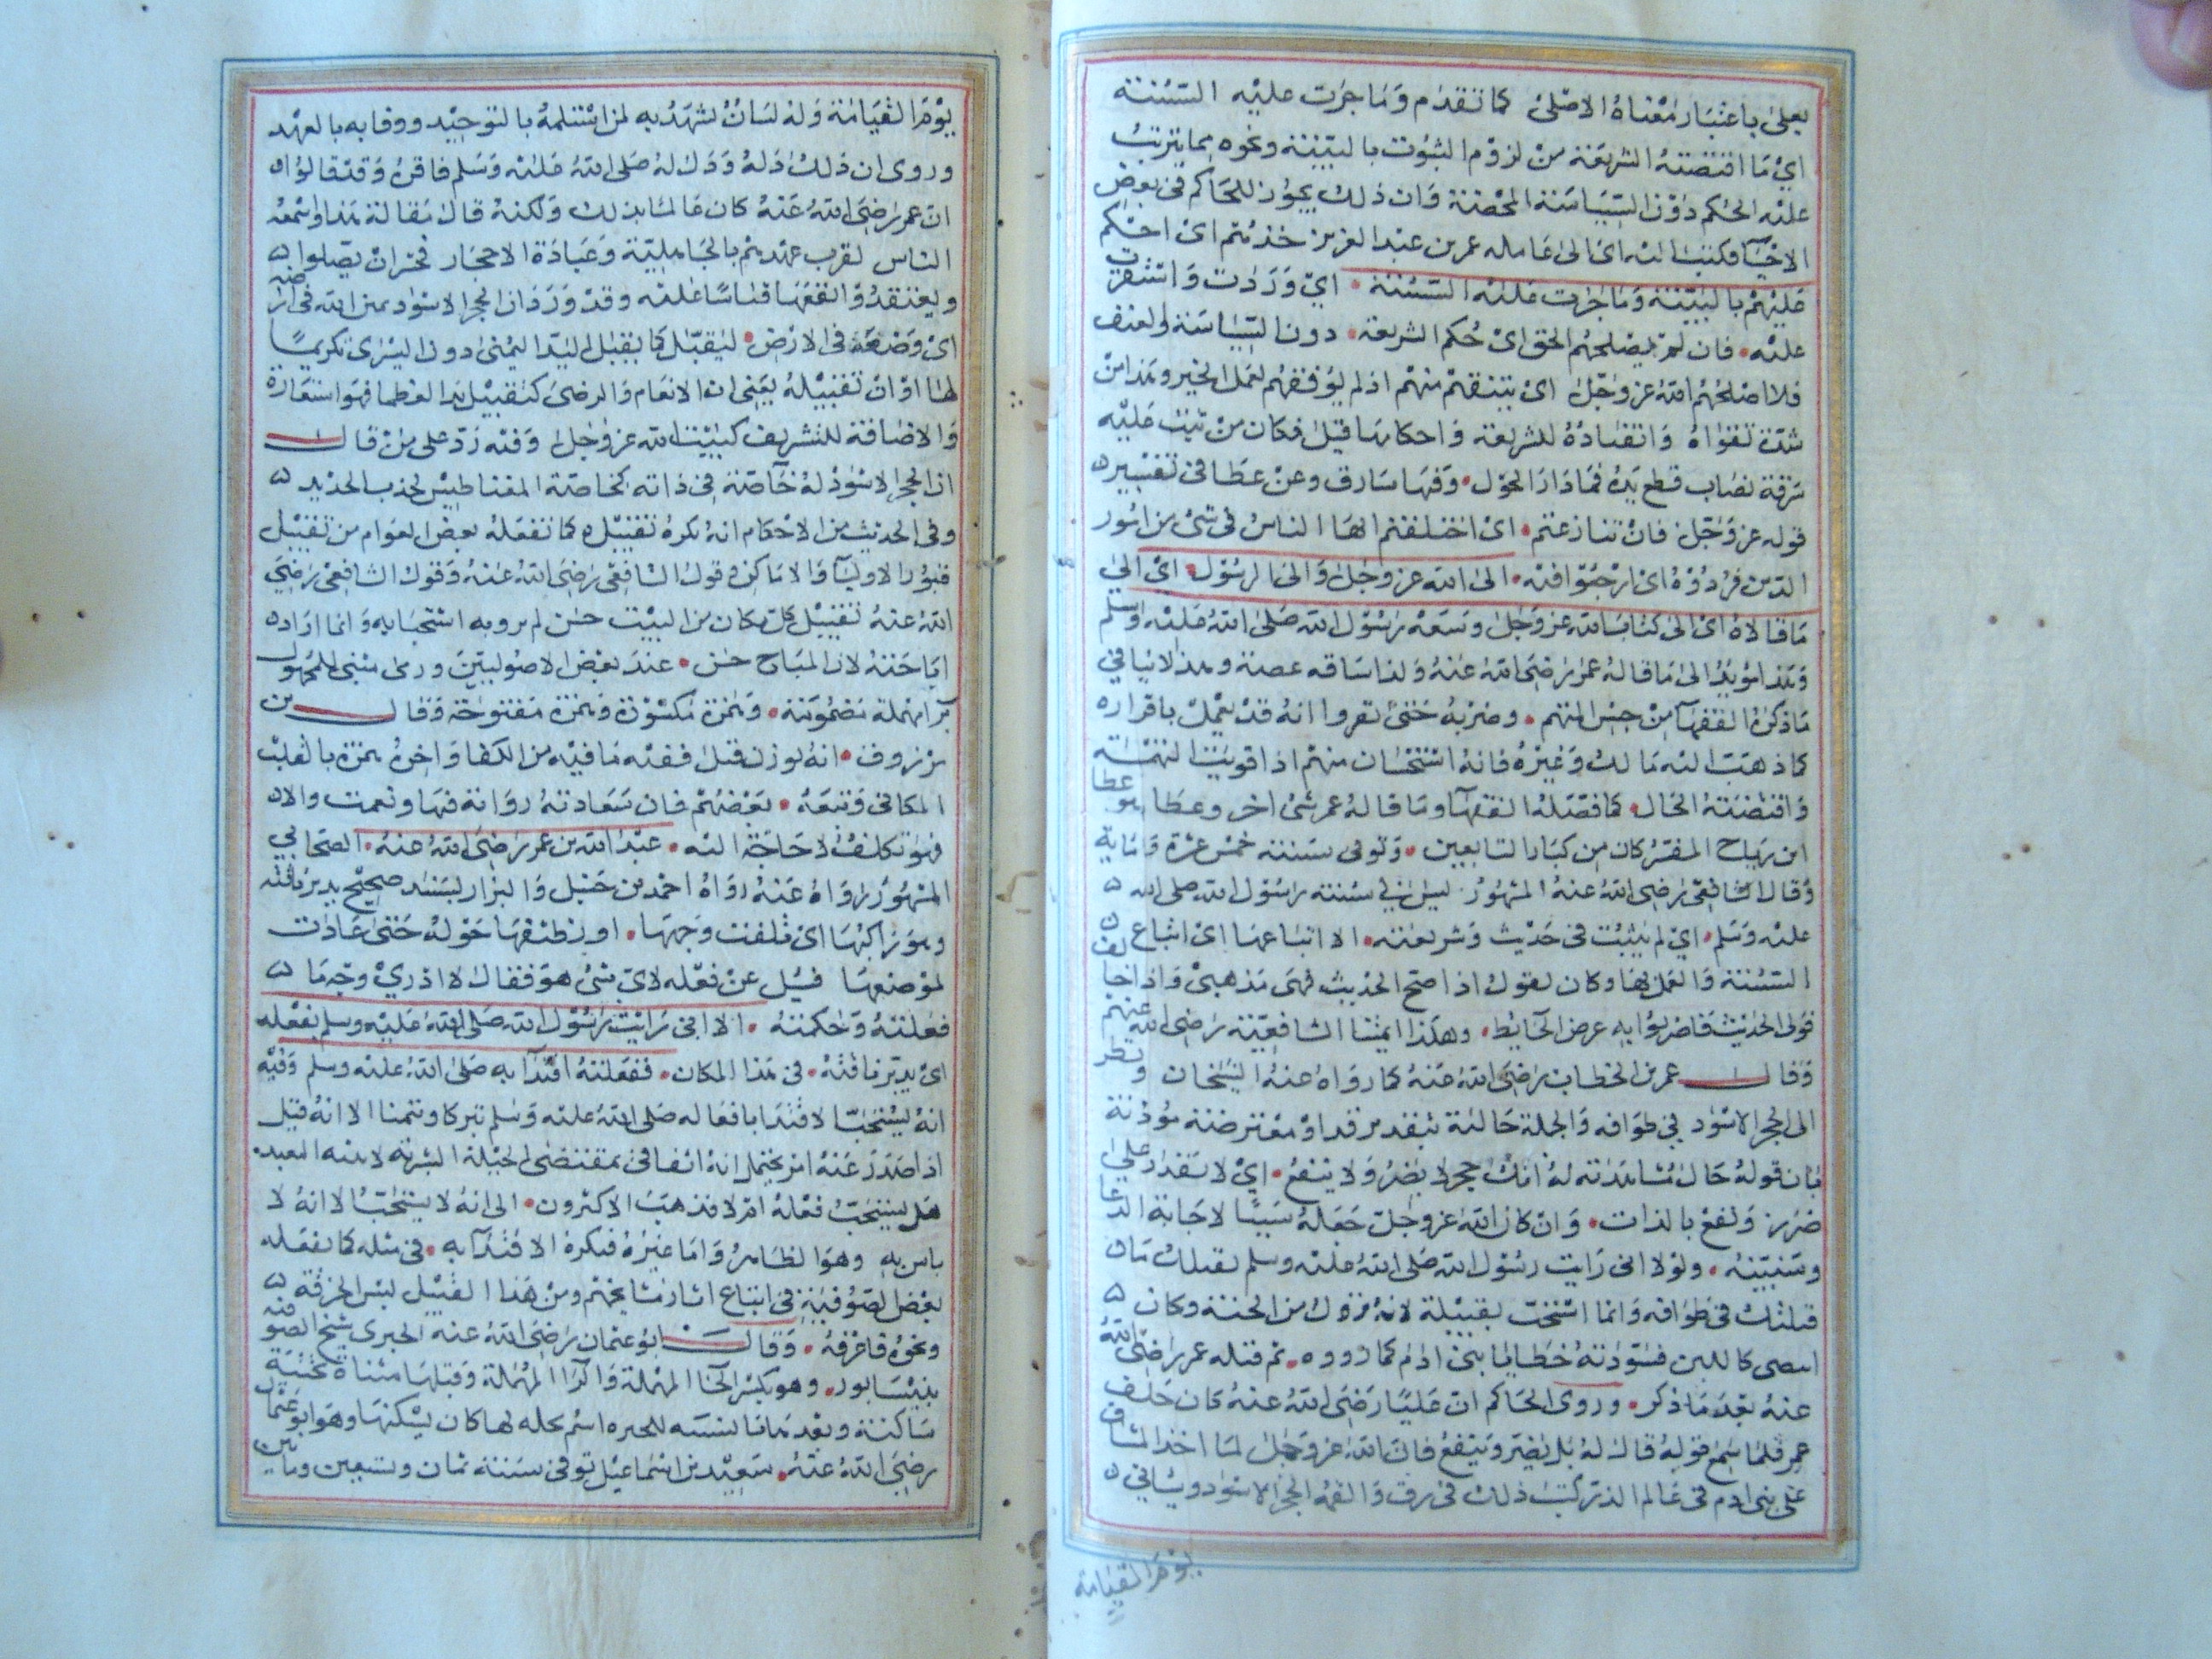 يعلى باعتبار معناه الاصلى كما تقدم وما جرت عليه السنة
اي ما اقتضته الشريعة من لزوم الثبوت بالبينة ونحوه مما يترتب
عليه الحكم دون السياسة المحضة وان ذلك يجوز للحاكم في بعض
الاحيا فكتب اليه اى الى عامله عمر بن عبد العزيز خذهم اى احكم
عليهم بالبينة وما جرت عليه السنة اي وردت واستقرت
عليه فان لم يصلحهم الحق اى حكم الشريعة دون السياسة والعنف
فلا اصلحهم الله عز وجل اى ينتقم منهم اذ لم يوفقهم لعمل الخير وهذا من
شدة تقواه وانقياده للشريعة واحكامها قيل فكان من ثبت عليه
سرقة نصاب قطع يده فما دار الحول وفيها سارق وعن عطا في تفسير
قوله عز وجل فان تنازعتم اى اختلفتم ايها الناس في شئ من امور
الدين فردوه اى ارجعوا فيه الى الله عز وجل والى الرسول اى الى
ما قالاه اى الى كتاب الله عز وجل وسنة رسول الله صلى الله عليه وسلم
وهذا مؤيد الى ما قاله عمر رضى الله عنه ولذا ساقه عصبة وهذا لا ينافي
ما ذكره الفقهآ من حبس المتهم وضربه حتى يقروا انه قد يعمل باقراره
كما ذهب اليه مالك وغيره فانه استحسان منهم اذا قويت التهمة
واقتضته الحال كما فصله الفقهآ وما قاله عمر شئ اخر وعطا هو عطا
ابن رباح المفسر كان من كبار التابعين وتوفى سنة خمس عشرة وماية
وقال الشافعى رضى الله عنه المشهور ليس في سنة رسول الله صلى الله
عليه وسلم اي لم يثبت في حديث وشريعته الا اتباعها اى اتباع
السنة والعمل بها وكان يقول اذا صح الحديث فهى مذهبى واذا خالف
قولى الحديث فاضربوا به عرض الحايط وهكذا ايمتنا الشافعية رضى الله عنهم
وقال عمر بن الخطاب رضى الله عنه كما رواه عنه الشيخان ونظر
الى الحجر الاسود في طوافه والجملة حالية بتقدير قد او معترضة مؤذنة
بان قوله حال مشاهدته له انك حجر لا يضر ولا ينفع اي لا تقدر على
ضرر ونفع بالذات وان كان الله عز وجل جعله سببا لاجابة الدعا
وسببيته ولولا انى رايت رسول الله صلى الله عليه وسلم يقبلك ما
قبلتك في طوافه وانما استحب تقبيله لانه نزل من الجنة وكان
ابيض كاللبن فسودته خطايا بنى ادم كما رووه ثم قبله عمر رضى الله
عنه بعد ما ذكر وروى الحاكم ان عليا رضى الله عنه كان خلف
عمر فلما سمع قوله قال له بل يضر وينفع فان الله عز وجل لما اخذ الميثاق
على بنى ادم في عالم الذر كتب ذلك في رق والقمه الحجر الاسود وسياتى
يوم القيامة
يوم القيامة وله لسان يشهد به لمن استلمه بالتوحيد ووفا به بالعهد
وروى ان ذلك ذكره له صلى الله عليه وسلم فاقره وقد قالوا
ان عمر رضى الله عنه كان عالما بذلك ولكنه قال مقالة هذا واسمعه
الناس لقرب عهدهم بالجاهلية وعبادة الاحجار فخران يضلوا
ويعتقدوا نفعها قياسا عليه وقد ورد ان الحجر الاسود يمين الله في ارضه
اى وضعه في الارض ليقبل كما يقبل اليد اليمنى دون اليسرى تكريما
لها او ان تقبيله يعنى ان الانعام والرضى كتقبيل يد العظما فهو استعارة
والاضافة للتشريف كبيت الله عز وجل وفيه رد على من قال
ان الحجر الاسود له خاصة في ذاته كخاصة المغناطيس لجذب الحديد
وفى الحديث من الاحكام انه يكره تقبيل كما تفعله بعض العوام من تقبيل
قبور الاوليآ والاماكن وقول الشافعى رضى الله عنه وقول الشافعى رضي
الله عنه تقبيل كل مكان من البيت حسن لم يرو به استحبابه وانما اراد
اباحته لان المباح حسن عند بعض الاصوليين ورى مبنى للمجهول
برآ مهملة مضمومة وهمزة مكسورة وهمزة مفتوحة وقال بن
مرزوق انه بوزن قيل ففيه ما فيه من الكفا واخره همزة بالقلب
المكانى وتبعه بعضهم فان ساعدته رواية فبها ونعمت والا
فهو تكلف لا حاجة اليه عبد الله بن عمر رضى الله عنه الصحابي
المشهور رواه عنه رواه احمد بن حنبل والبزار بسند صحيح يدير ناقته
وهو راكبها اى فلفت وجهها او نطيفها حوله حتى عادت
لموضعها فسيل عن فعله لاى شئ هو فقال لا ادري وجه ما
فعلته وحكمته الا انى رايت رسول الله صلى الله عليه وسلم يفعله
اى يدير ناقته في هذا المكان ففعلته اقتدآ به صلى الله عليه وسلم وفيه
انه يستحب الاقتدا بافعاله صلى الله عليه وسلم تبركا وتيمنا الا انه قيل
اذا صدر عنه امر يحتمل انه اتفاقى بمقتضى الجبلة البشرية لا بنية التعبد
هل يستحب فعله ام لا فذهب الاكثرون الى انه لا يستحب الا انه لا
باس به وهو الظاهر واما غيره فيكره الاقتدآ به في مثله كما تفعله
بعض الصوفية في اتباع اثار مشايخهم ومن هذا القبيل لبس الخرقة
ونحوه فاعرفه وقال ابو عثمان رضى الله عنه الحيرى شيخ الصوفية
بنيسابور وهو بكسر الحا المهملة والرا المهملة وقبلها مثناة تحتية
ساكنة وبعدها يا نسبة للحيره اسم محله لها كان يسكنها وهو ابو عثمان
رضى الله عنه سعيد بن اسماعيل توفى سنة ثمان وتسعين وماتين